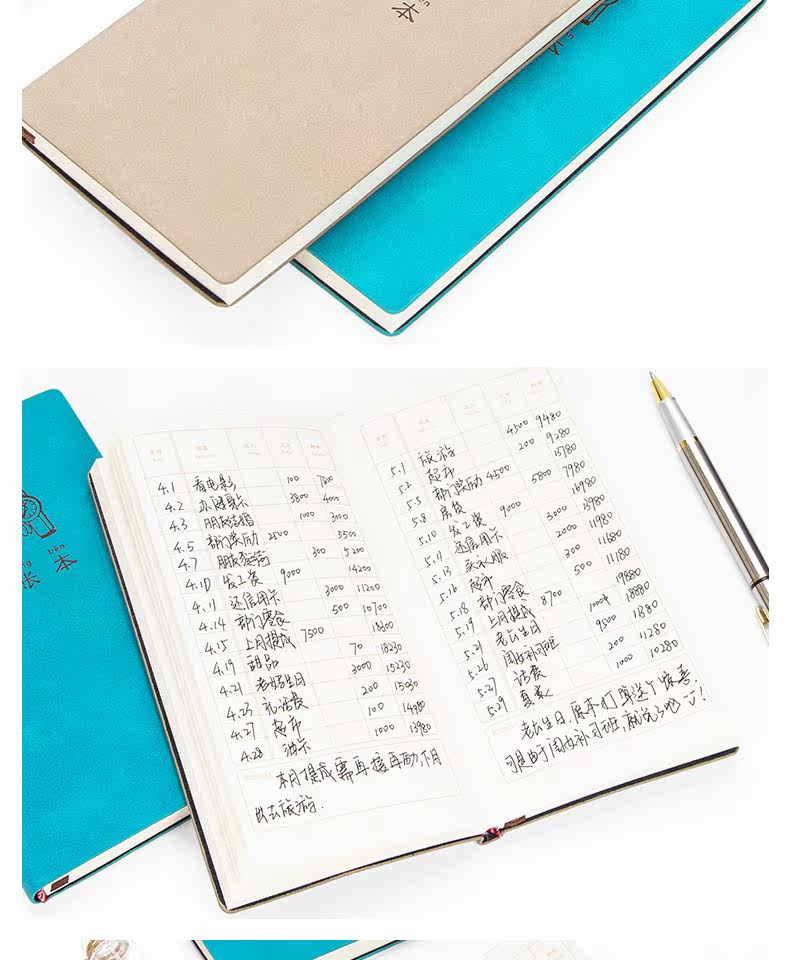 本
ben
账本
ben
日期 项目 收入 支出 结余
4.1 看电影 100 7800
4.2 办健身卡 3800 4000
4.3 朋友结婚 1000 3000
4.5 部门奖励 2500 5500
4.7 朋友聚会 300 5200
4.10 发工资 9000 14200
4.11 还信用卡 3000 11200
4.14 部门零食 500 10700
4.15 上月提成 7500 18300
4.19 甜品 70 18230
4.21 老妈生日 3000 15230
4.23 充话费 200 15030
4.27 超市 100 14980
4.28 油卡 1000 13980
本月提成需再接再励,下月
出去旅游.
日期 项目 收入 支出 结余
5.1 旅游 4500 9480
5.2 超市 200 9280
5.5 部门奖励 4500 13780
5.8 房贷 5800 7980
5.10 发工资 9000 16980
5.11 还信用卡 3000 13980
5.13 买衣服 2000 11980
5.16 超市 300 11680
5.18 部门零食 500 11180
5.19 上月提成 8700 19880
5.21 老公生日 1000 18880
5.26 闺女补习班 9500
5.27 话费 200 11280
5.29 夏装 1000 10280
老公生日,原本打算送个惊喜.
可是由于闺女补习班,就没了吧!